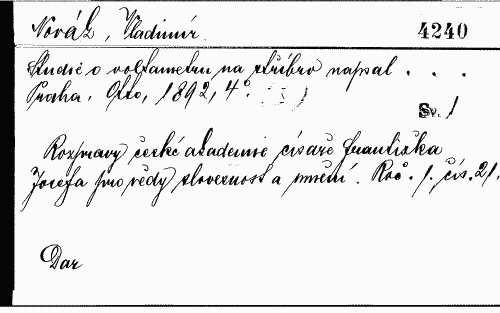 Novák, Vladimír. 4240
Studie o voltametru na stříbro napsal . . .
Praha. Otto, 1892, 4°.
Sv. 1
Rozpravy české akademie císaře Františka
Josefa pro vědy slovesnost a umění. Roč. 1. čís. 21.
Dar